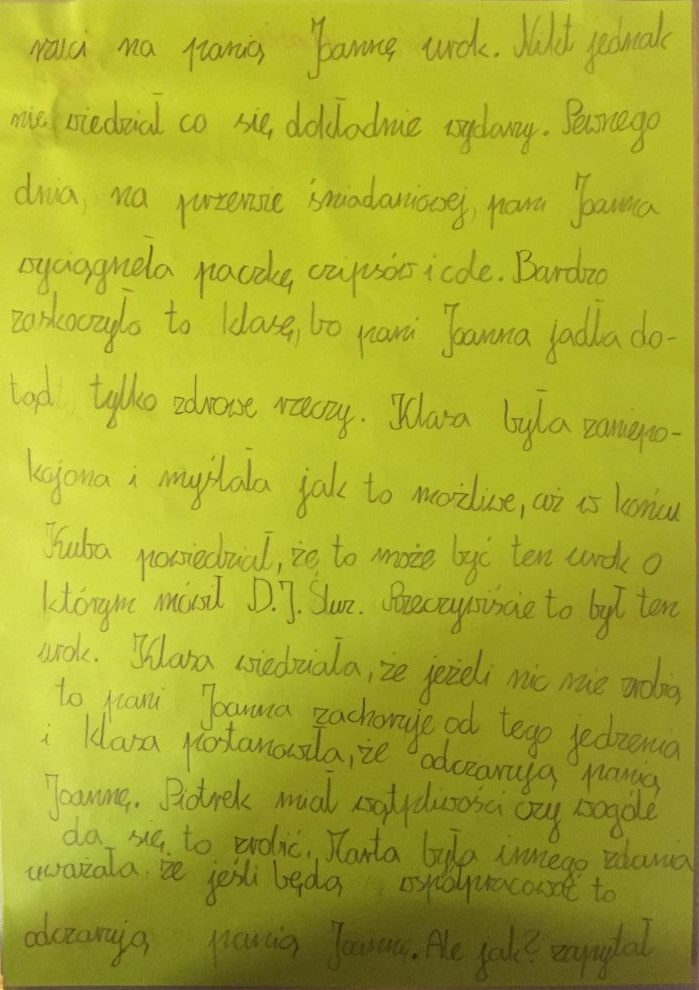 rzuci na panią Joannę urok. Nikt jednak
nie wiedział co się dokładnie wydarzy. Pewnego
dnia, na przerwie śniadaniowej, pani Joanna
wyciągneła paczkę czipsów i cole. Bardzo
zaskoczyło to klasę, bo pani Joanna jadła do-
tąd tylko zdrowe rzeczy. Klasa była zaniepo-
kojona i myślała jak to możliwe, aż w końcu
Kuba powiedział, że to może być ten urok o
którym mówił D.J. Ślur. Rzeczywiście to był ten
urok. Klasa wiedziała, że jeżeli nic nie zrobią
to pani Joanna zachoruje od tego jedzenia
i klasa postanowiła, że odczarują panią
Joannę. Piotrek miał wątpliwości czy wogóle
da się to zrobić. Marta była innego zdania
uważała, że jeśli będą współpracować to
odczarują panią Joannę. Ale jak? zapytał